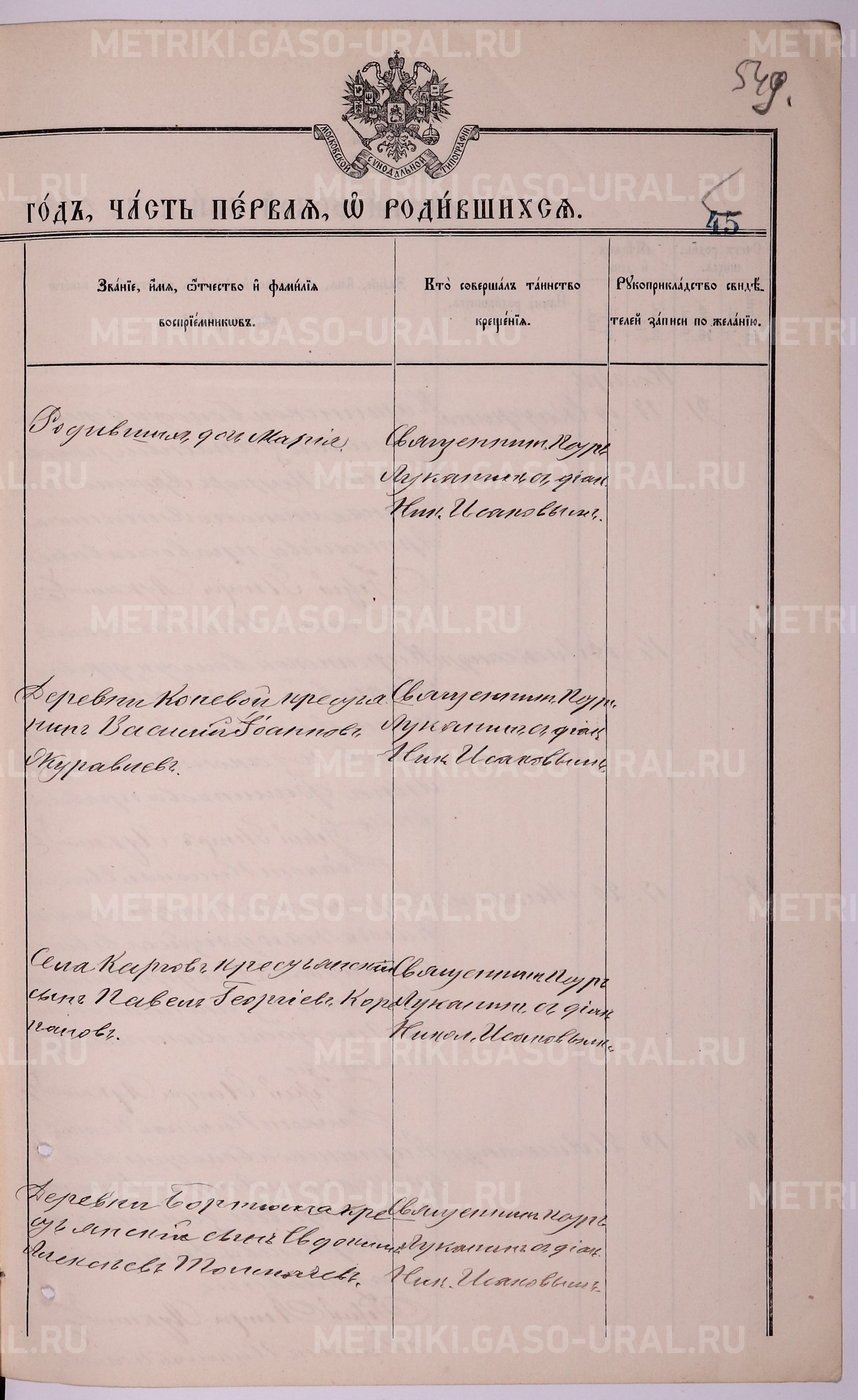 549.
МОСКОВСКОЙ СѴНОДАЛЬНОЙ ТИПОГРАФІИ
ГО́ДЪ, ЧА́СТЬ ПЕ́РВАЯ, Ѽ РОДИ́ВШИХСѦ.
45
Зва́нїе, и҆́мѧ, ѻ҆́тчество и҆ фами́лїѧ
воспрїе́мникѡвъ.
Кто̀ соверша́лъ та́инство
креще́нїѧ.
Рꙋкоприкла́дство свидѣ́-
телей за́писи по жела́нїю.
Родившихъ дочь Марія.
Священникъ Петръ
Луканинъ съ діак.
Ник. Исаковымъ.
Деревни Копевой крестья
нинъ Василій Іоанновъ
Журавлевъ.
Священникъ Петръ
Луканинъ съ діак.
Ник. Исаковымъ.
Села крестьянскій
сынъ Павелъ Георгіевъ
Священникъ Петръ
Луканинъ съ діак.
Никол. Исаковымъ.
Деревни кре
стьянскій сынъ Евдокимъ
Алексѣевъ Толмачевъ.
Священникъ Петръ
Луканинъ съ діак.
Ник. Исаковымъ.
METRIKI.GASO-URAL.RU